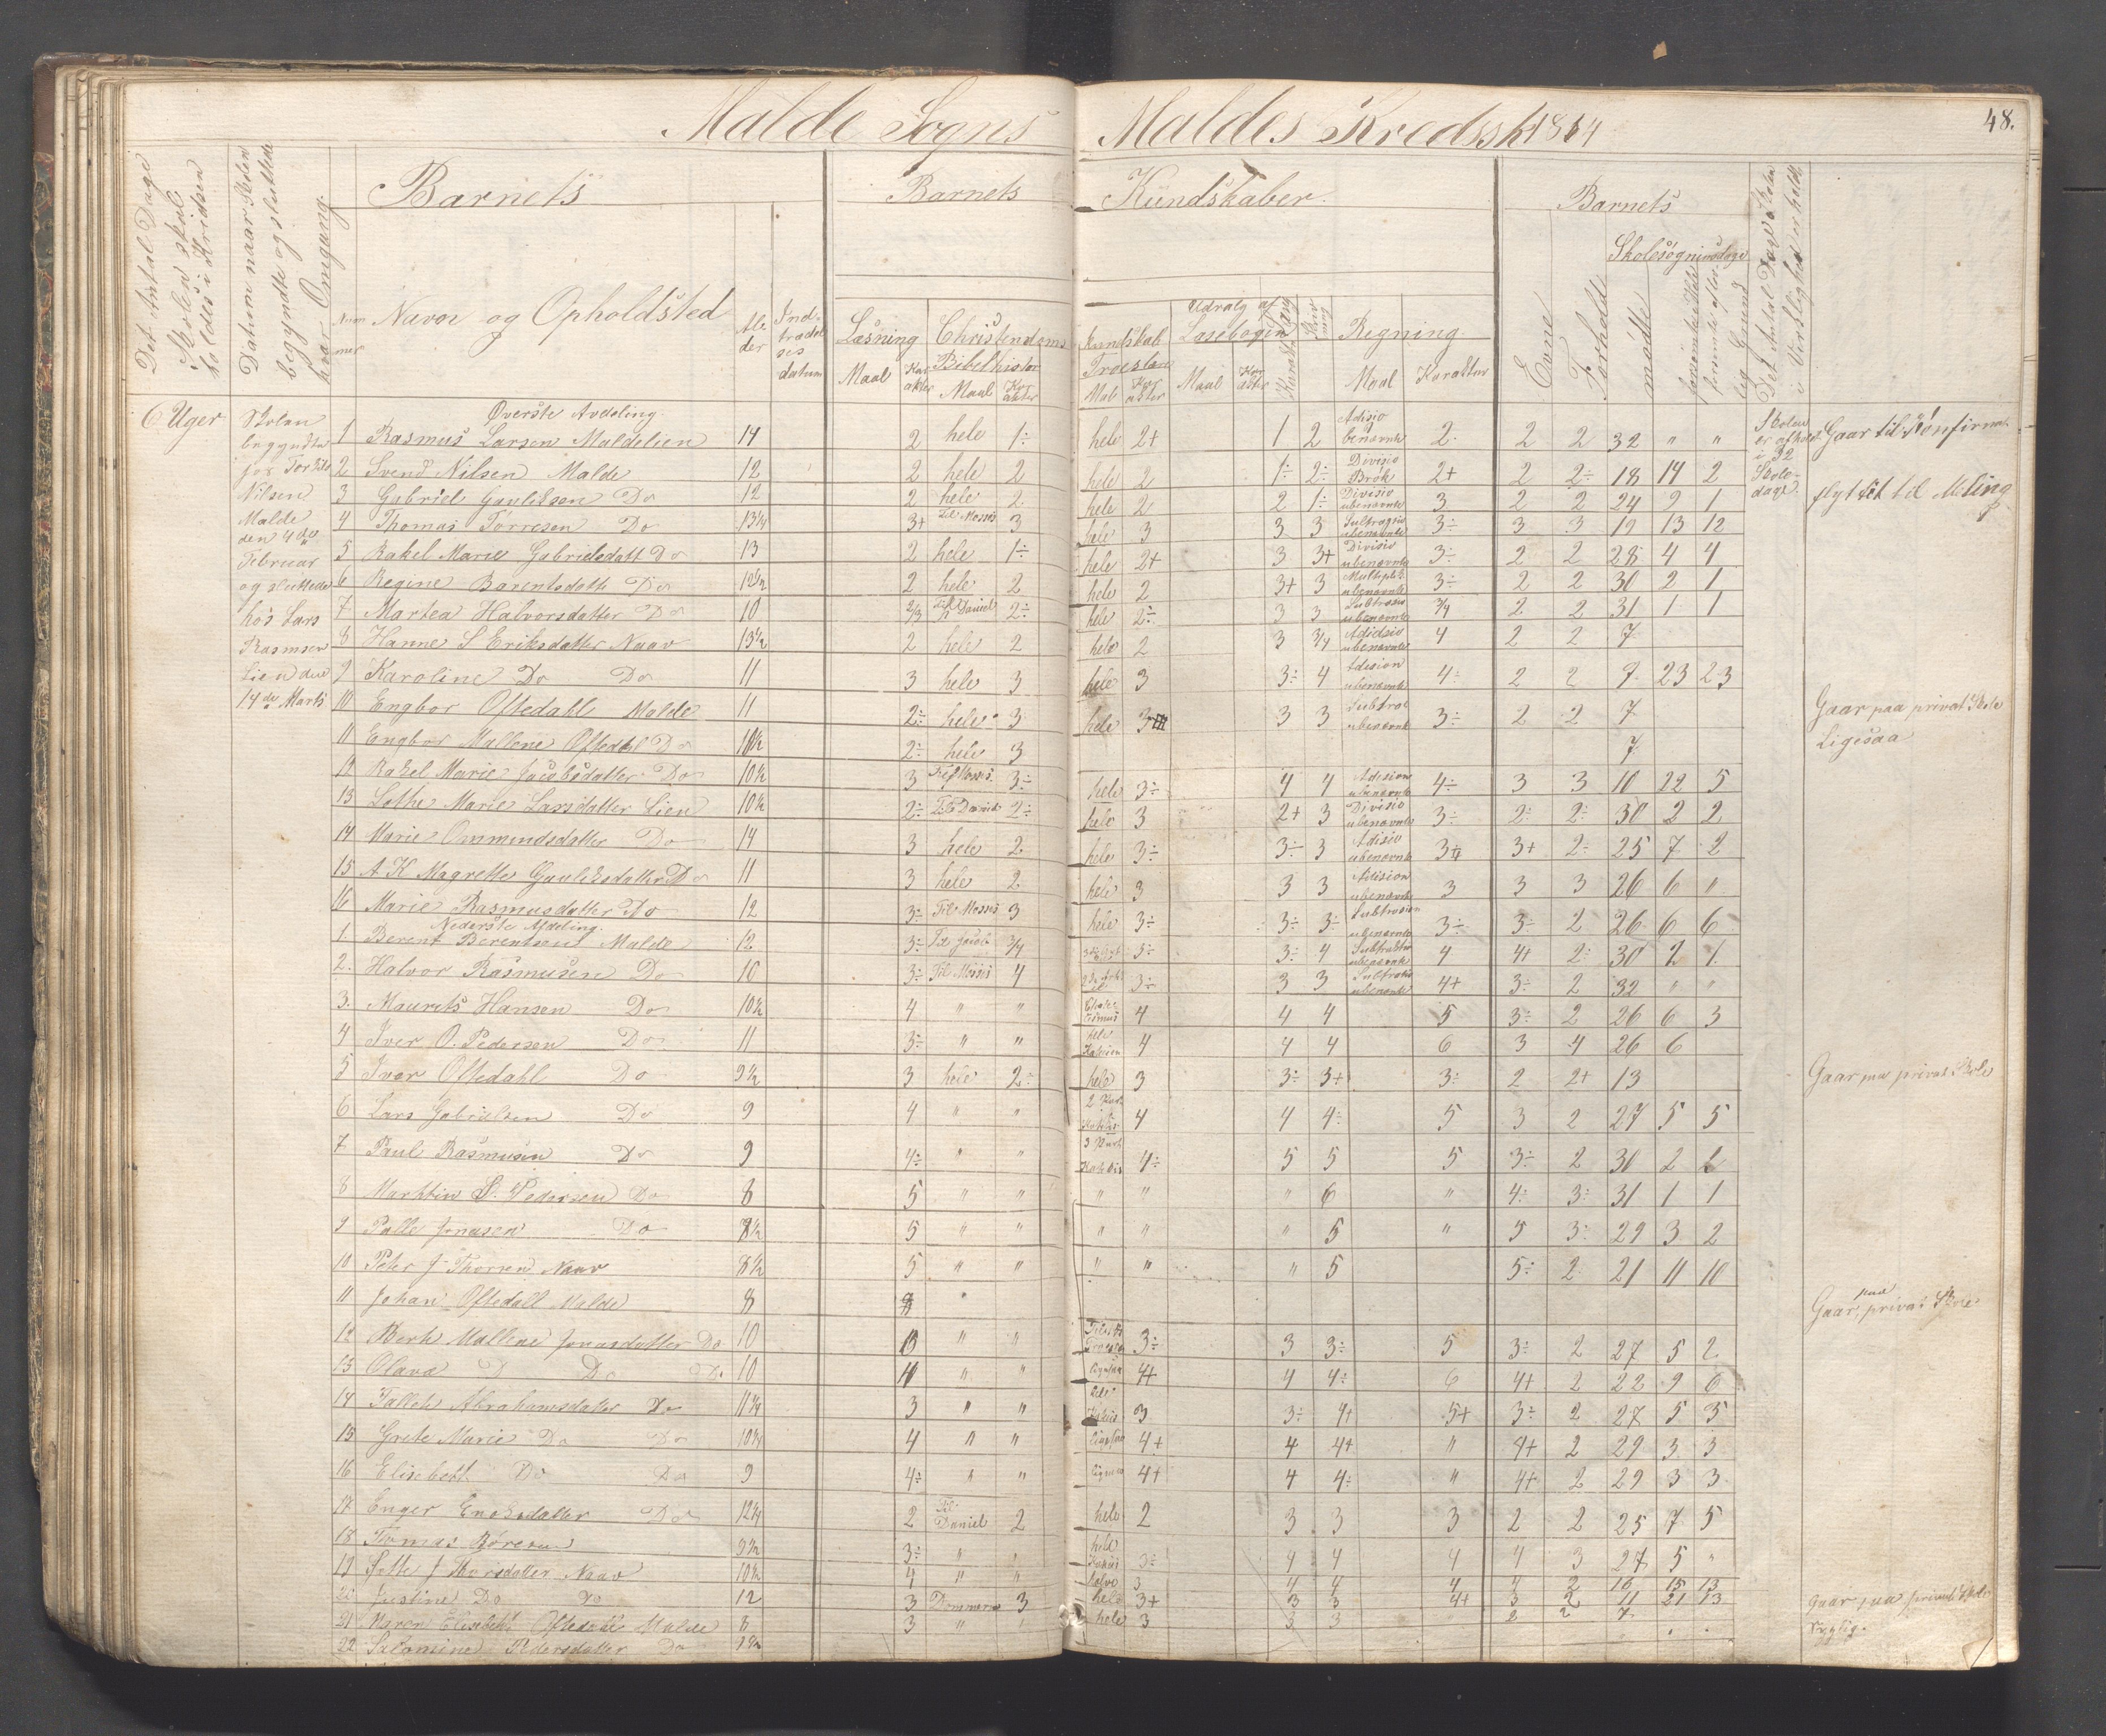 Malde Sogns Maldes Kredssk 1864
48.
Det Antal Dage Skolen skal holdes i Kredsen
Datum naar Skolen begyndte og sluttede hver Omgang
Barnets
Barnets Kundskaber.
Barnets
Nummer
Navn og Opholdsted
Alder
Indtrædelses datum
Læsning
Christendoms Kundskab
Maal
Karakter
Bibelhistor
Maal
Karakter
Troeslære
Maal
Karakter
Udvalg af Læsebogen
Maal
Karakter
Sang
Karakter
Skrivning
Regning.
Maal
Karakter
Evne
Forholde
Skolesøgningsdage
mødte
Det Antal Dage Skolen i Virkelighed er holdt
6 Uger
Skolen begyndte hos Nilsen Malde den 4de Februar og sluttede hos Lars Rasmusen Lien den 14de Marts
Øverste Avdeling.
1 Rasmus Larsen Maldelien 14 2 hele 1÷ hele 2+ 1 2 Adisio benævnte 2÷ 2 2 32 " " Skolen er afholdt i 32 Skoledage. Gaar til Konfirmat.
2 Svend Nilsen Malde 12 2 hele 2 hele 2 1÷ 2÷ Divisio Brøk 2+ 2 2÷ 18 14 2
3 Gabriel Gauleksen Do 12 2 hele 2 hele 2 2 1÷ Divisio ubenævnte 3 2 2 24 9 1 flyttet til Meling
4 Thomas Torresen Do 13¼ 3+ Til Moses 3 hele 3 3 3 ubenævnte 3÷ 3 3 19 13 12
5 Rakel Marie Gabrielsdatt Do 13 2 hele 1÷ hele 2+ 3 3+ Divisio ubenævnte 3÷ 2 2 28 4 4
6 Regine Barentsdatt Do 12½ 2 hele 2 hele 2 3+ 3 ubenævnte 3÷ 2 2 30 2 1
7 Martea Halvorsdatter Do 10 2/3 Til Daniel 2÷ hele 2÷ 3 3 ubenævnte 3/4 2 2 31 1 1
8 Hanne S Eriksdatter Naav 13½ 2 hele 2 hele 2 3 3/4 Adidsio ubenævnte 4 2 2 7
9 Karoline Do Do 11 3 hele 3 hele 3 3÷ 4 Adision ubenævnte 4÷ 2 2 9 23 23
10 Engbor Oftedahl Malde 11 2÷ hele 3 hele 3 3 3 Subtrac ubenævnte 3÷ 2 2 7 Gaar paa privat Skole
11 Engbor Mallene Oftedahl Do 2÷ hele 3 7 Ligesaa
12 Rakel Marie Jacobsdatter Do 10½ 3 Til Moses 3÷ hele 3÷ 4 4 Adision ubenævnte 4÷ 3 3 10 22 5
13 Lothe Marie Larsdatter Lien 10½ 2÷ Til Daniel 2÷ hele 3 2+ 3 Divisio ubenævnte 3÷ 2÷ 2÷ 30 2 2
14 Marie Ommundsdatter Do 14 3 hele 2 hele 3÷ 3÷ 3 Adisio ubenævnte 3+ 3+ 2÷ 25 7 2
15 A K Magrethe Gauleksdatter Do 11 3 hele 2 hele 3 3 3 Adision ubenævnte 3 3 3 26 6 "
16 Marie Rasmusdatter Do 12 3÷ Til Moses 3 hele 3÷ 3÷ 3÷ Subtrasion ubenævnte 3÷ 3÷ 2 26 6 6
Nederste Afdeling.
1 Berent Berentsen Malde 12 3÷ Til Jacob 3/4 3÷ 3÷ 4 Subtraktio ubenævnte 4 4+ 2÷ 30 2 1
2. Halvor Rasmusen Do 10 3÷ Til Moses 4 3÷ 3 3 ubenævnte 4+ 3÷ 2 32 " "
3. Maurits Hansen Do 10½ 4 " " 4 4 4 5 3÷ 2 26 6 3
4 Iver O. Pedersen Do 11 3÷ " " hele 4 4 4 6 3 4 26 6
5 Ivar Oftedahl Do 9½ 3 hele 2÷ hele 3 3÷ 3+ 3÷ 2 2+ 13 Gaar paa privat Skole
6 Lars Gabrielsen Do 9 4 " " 2 Part 4 4 4÷ 5 3 2 27 5 5
7 Paul Rasmusen Do 9 4÷ " " 3 Part 4÷ 5 5 5 3÷ 2 30 2 2
8 Marthin S. Pedersen Do 8 5 " " " " " 6 " 4÷ 3÷ 31 1 1
9 Palle Jonasen Do 8½ 5 " " " " " 5 " 5 3÷ 29 3 2
10 Peter J Thorsen Naav 8½ 5 " " " " " 5 5÷ 2 21 11 10
11 Johan Oftedall Malde 8 " Gaar paa privat Skole
12 Berte Mallene Jonasdatter Do 10 3 " " 3÷ 3 3÷ 5 3÷ 2 27 5 2
13 Olava D Do Do 10 4 " " ligesaa 4+ 4 4÷ 6 4+ 2 22 9 6
14 Abrahamsdatter Do 11¼ 3 " " 3 3÷ 4+ 5+ 3÷ 2 27 5 5
15 Grete Marie Do Do 10¾ 4 " " ligesaa 4+ 4 4+ " 4+ 2 29 3 3
16 Elisebett Do Do 9 4÷ " " ligesaa 4+ 4 4÷ " 4+ 2 29 3 3
17 Enger Enoksdatter Do 12¼ 2 Til Daniel 2 hele 2 3 3 3 2 2 25 7 5
18 Tomas 9½ 3÷ " " 3÷ 4 4 4 4 3 27 5 "
19 Thorsdatter Naav 10½ 4 " " halve 3 4 4 4 4 2 16 15 13
20 Justine Do Do 12 3 Dommerne 3 hele 3+ 3 3 4+ 3 2 11 21 13
21 Maren Elisebeth Oftedal Malde 8 3 " hele 3 3 3 2 2 7 Gaar paa privat Skole
22 Salomine Pedersdatter Do